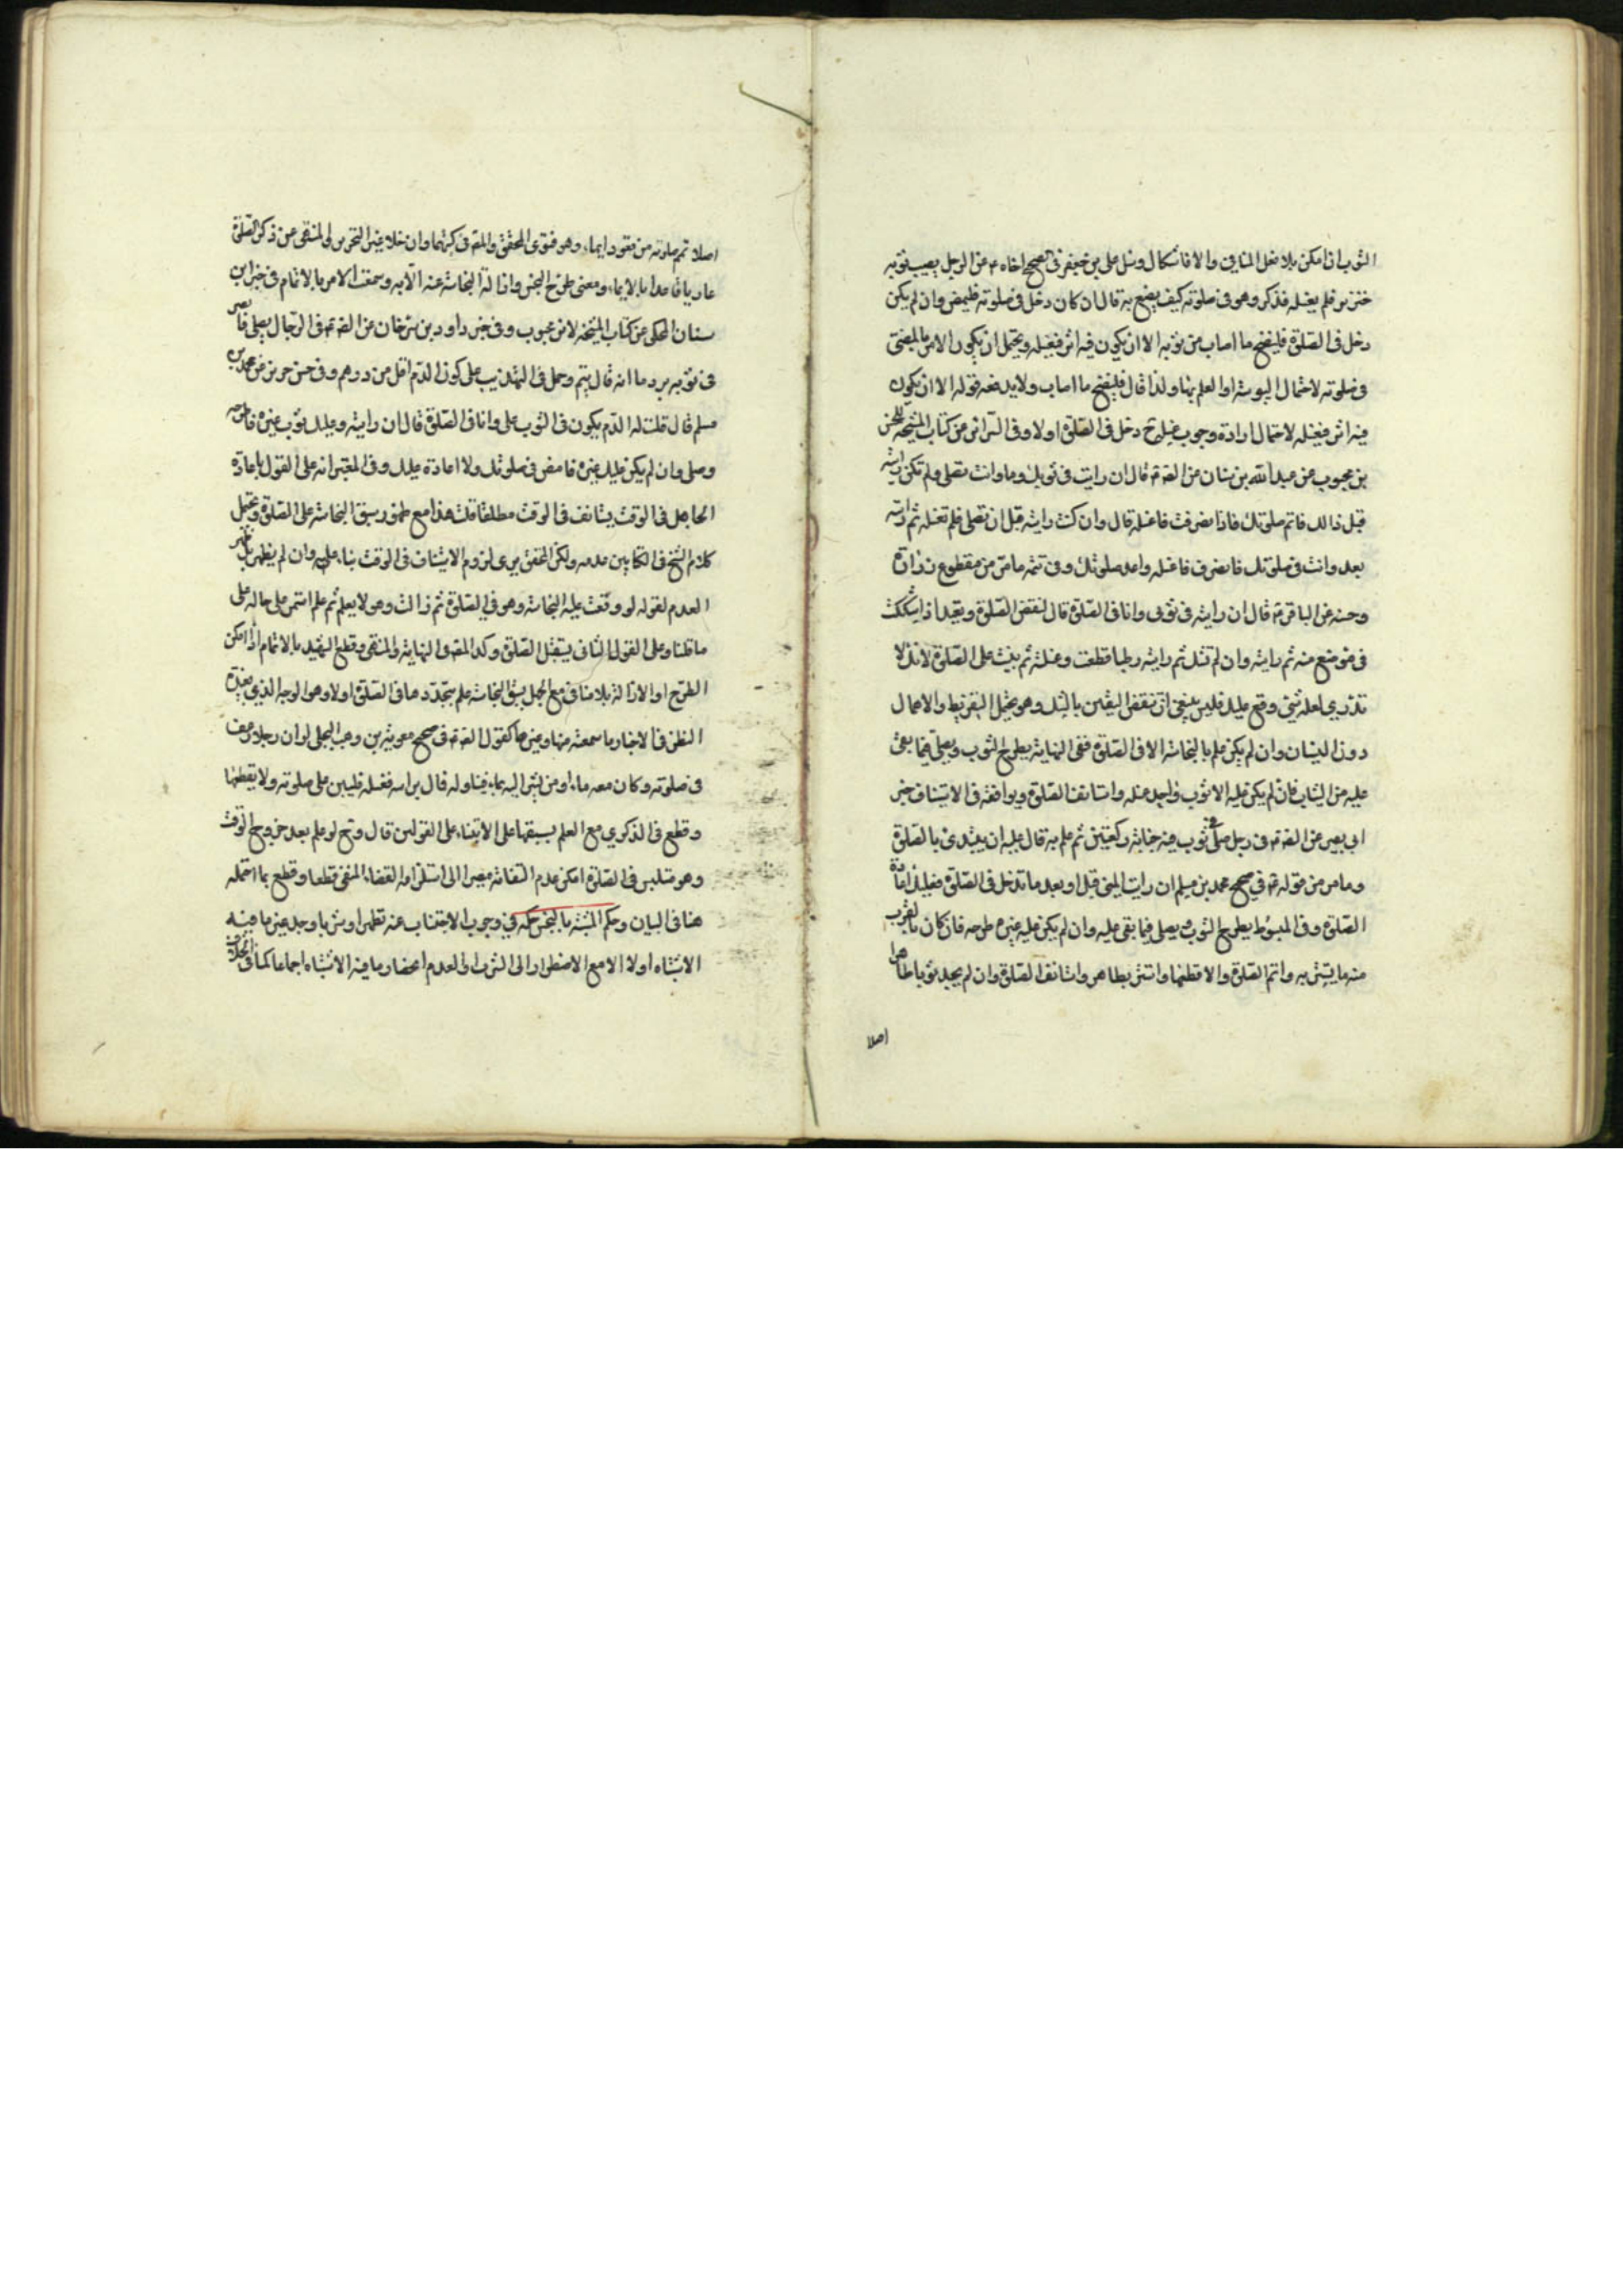 الثوب ان امكن بلا فعل المنافى والا فاشكال وسئل على بن جعفر فى الصحيح اخاه ع عن الرجل يصيب ثوبه
خنزير فلم يغسله فذكر وهو فى صلوته كيف يصنع به قال ان كان دخل فى صلوته فليمض وان لم يكن
دخل فى الصلوة فلينضح ما اصاب من ثوبه الا ان يكون فيه اثر فيغسله ويحتمل ان يكون الامر بالمضى
فى صلوته لاحتمال اليبوسة او العلم بها ولذا قال فلينضح ما اصاب ولا يدفعه قوله الا ان يكون
فيه اثر فيغسله لاحتمال ارادة وجوب غسله ح دخل فى الصلوة اولا وفى السرائر من كتاب المشيخة للحسن
بن محبوب عن عبد الله بن سنان عن الصّ ع قال ان رايت فى ثوبك دما وانت تصلى ولم تكن رايته
قبل ذالك فاتم صلوتك فاذا انصرفت فاغسله قال وان كنت رايته قبل ان تصلى فلم تغسله ثم رايته
بعد وانت فى صلوتك فانصرف فاغسله واعد صلوتك وفى تتمه ما مر من مقطوع زرارة
وحسنه عن الباقر ع قال ان رايته فى ثوبى وانا فى الصلوة قال تنقض الصلوة وتعيد اذا شككت
فى موضع منه ثم رايته وان لم تشك ثم رايته رطبا قطعت وغسلته ثم بنيت على الصلوة لانك لا
تدرى لعله شئ وقع عليك فليس ينبغى ان تنقض اليقين بالشك وهو يحتمل التفريط والاهمال
دون النسيان وان لم يكن علم بالنجاسة الا فى الصلوة ففى النهاية يطرح الثوب ويصلى فيما بقى
عليه من الثياب فان لم يكن عليه الا ثوب واحد غسله واستانف الصلوة ويوافقه فى الاستيناف خبر
ابى بصير عن الصّ ع فى رجل صلى فى ثوب فيه جنابة ركعتين ثم علم به قال عليه ان يبتدى بالصلوة
وما مر من قوله ع فى صحيح محمد بن مسلم ان رايت المنى قبل او بعد ما تدخل فى الصلوة فعليك اعادة
الصلوة وفى المبسوط يطرح الثوب ويصلى فيما بقى عليه وان لم يكن عليه غيره طرحه فان كان بالقرب
منه ما يستتر به واتم الصلوة والا قطعها واستتر بطاهر واستانف الصلوة وان لم يجد ثوبا طاهرا
اصلا
اصلا تمم صلوته من قعود ايماء وهو فتوى المحقق والمصّ فى كتبهما وان خلا غير التحرير والمنتهى عن ذكر الصلوة
عاريا قاعدا بالايماء ومعنى طرح النجس وازالة النجاسة عنه الآية وسمعت الامر بالاتمام فى خبر ابن
سنان المحكى عن كتاب المشيخة لابن محبوب وفى خبر داود بن سرحان عن الصّ ع فى الرجال يصلى فابصر
فى ثوبه بردما انه قال يتم وحمل فى التهذيب على كون الدم اقل من درهم وفى حسن حريز عن محمد بن
مسلم قال قلت له الدم يكون فى الثوب على وانا فى الصلوة قال ان رايته وعليك ثوب غيره فاطرحه
وصلى وان لم يكن عليك غيره فامض فى صلوتك ولا اعادة عليك وفى المعتبر انه على القول باعادة
الجاهل فى الوقت يستانف فى الوقت مطلقا قلت هذا مع ظهور سبق النجاسة على الصلوة ويحتمل
كلام الشيخ فى الكتابين عدمه ولكن المحقق يرى لزوم الاستيناف فى الوقت بناء عليه وان لم يظهر بل ظهر
العدم لقوله لو وقعت عليه النجاسة وهو فى الصلوة ثم زالت وهو لا يعلم ثم علم استمر على حاله على
ما قلناه وعلى القول الثانى يستقبل الصلوة وكذا المصّ فى النهاية والمنتهى وقطع الشهيد بالاتمام اذا امكن
الطرح او الازالة بلا مناف مع الجهل بسبق النجاسة علم بتجددها فى الصلوة اولا وهو الوجه الذى يفيده
النظر فى الاخبار ما سمعته منها وغيرها كقول الصّ ع فى صحيح معوية بن وهب البجلى لو ان رجلا رعف
فى صلوته وكان معه ماء او من يشير اليه بماء فيناوله قال براسه فغسله فليبن على صلوته ولا يقطعها
وقطع فى الذكرى مع العلم بسبقها على الابتناء على القولين قال وح لو علم بعد خروج الوقت
وهو متلبس فى الصلوة امكن عدم التفاته مصيرا الى استلزامه القضاء المنفى قطعا وقطع بما احتمله
هنا فى البيان وحكم المشتبه بالنجس حكمه فى وجوب الاجتناب عنه تطهرا وشربا وجد غير ما فيه
الاشتباه اولا الا مع الاضطرار الى الشرب والعدم انحصار ما فيه الاشتباه اجماعا كما فى الخلاف